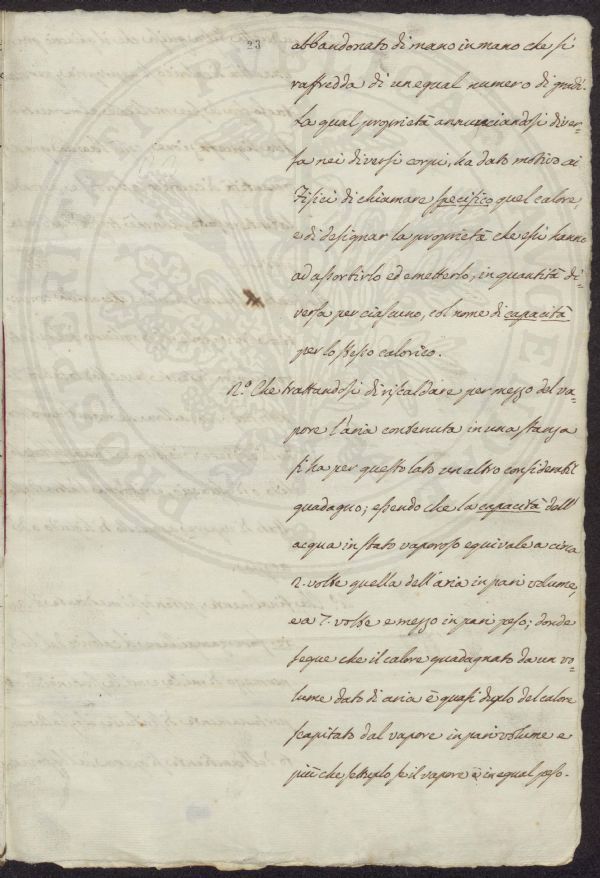 23
abbandonato di mano in mano che si
raffredda di un egual numero di gradi.
La qual proprietà annunciandosi diver=
sa nei diversi corpi, ha dato motivo ai
Fisici di chiamare specifico quel calore,
e di designar la proprietà che essi hanno
ad assorbirlo ed emetterlo, in quantità di=
versa per ciascuno, col nome di capacità
per lo stesso calorico.
2.° Che trattandosi di riscaldare per mezzo del va=
pore l'aria contenuta in una stanza
si ha per questo lato un altro considerabil
guadagno; essendo che la capacità dell'
acqua in stato vaporoso equivale a circa
2. volte quella dell'aria in pari volume,
e a 7. volte e mezzo in pari peso; donde
segue che il calore guadagnato da un vo=
lume dato di aria è quasi duplo del calore
scapitato dal vapore in pari volume e
più che settuplo se il vapore è in egual peso.